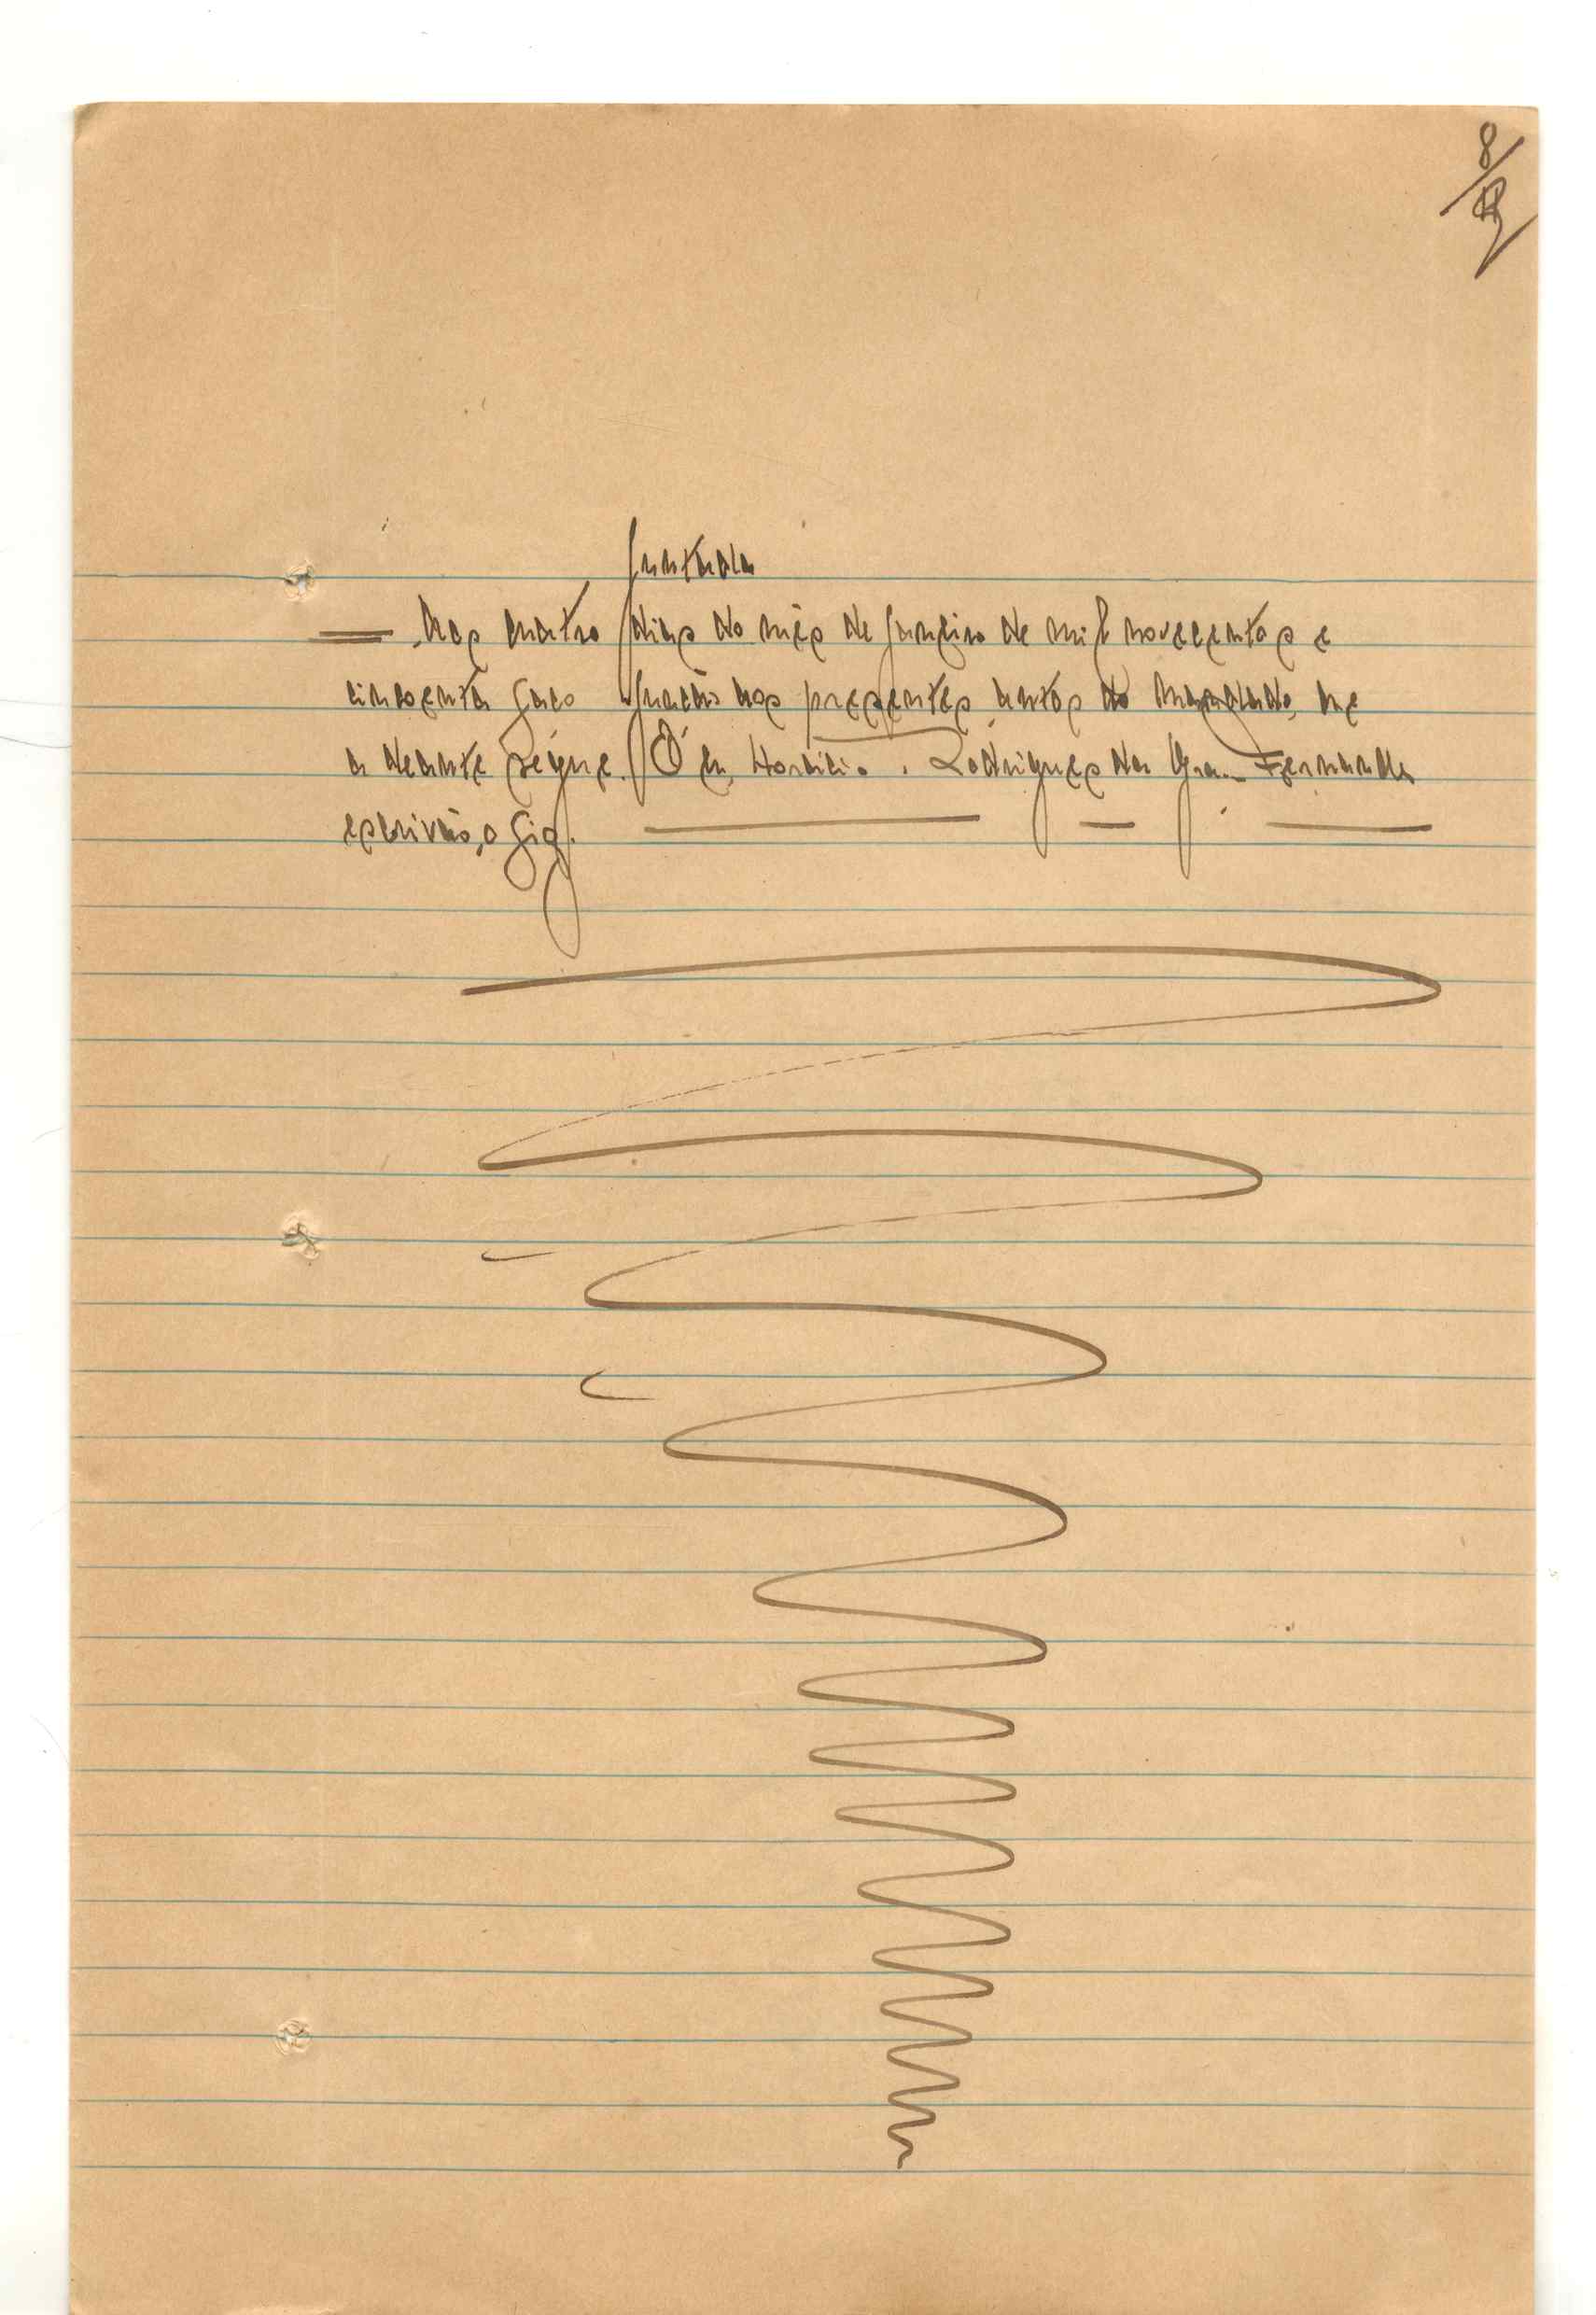 8
Juntada
Aos quatro dias do mês de Janeiro de mil novecentos e
cincoenta faço junção aos presentes autos do mandado, que
a deante segue. Eu, Rodrigues da Fernandes
escrivão, o fiz.